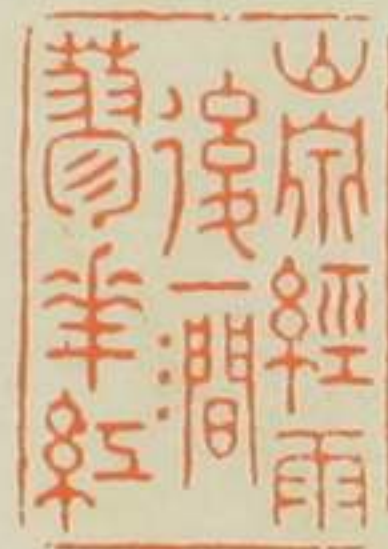 山泉經雨
後一澗
蓼華紅